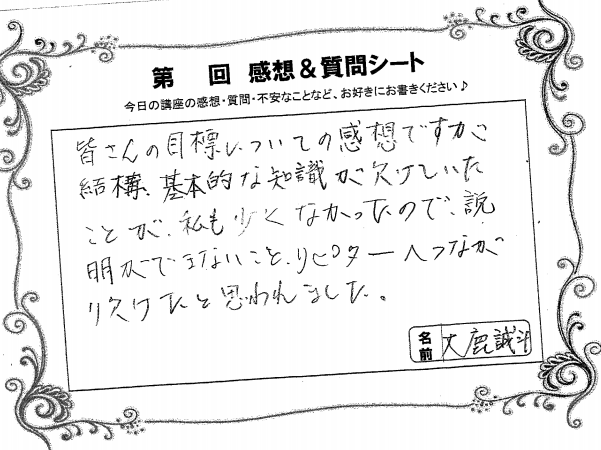 第 回 感想&質問シート
今日の講座の感想・質問・不安なことなど、お好きにお書きください♪
皆さんの目標についての感想ですが
結構、基本的な知識が欠けていた
ことが、私も少くなかったので、説
明ができないこと、リピターへつなが
り欠けたと思われました。
名前 大鹿誠斗